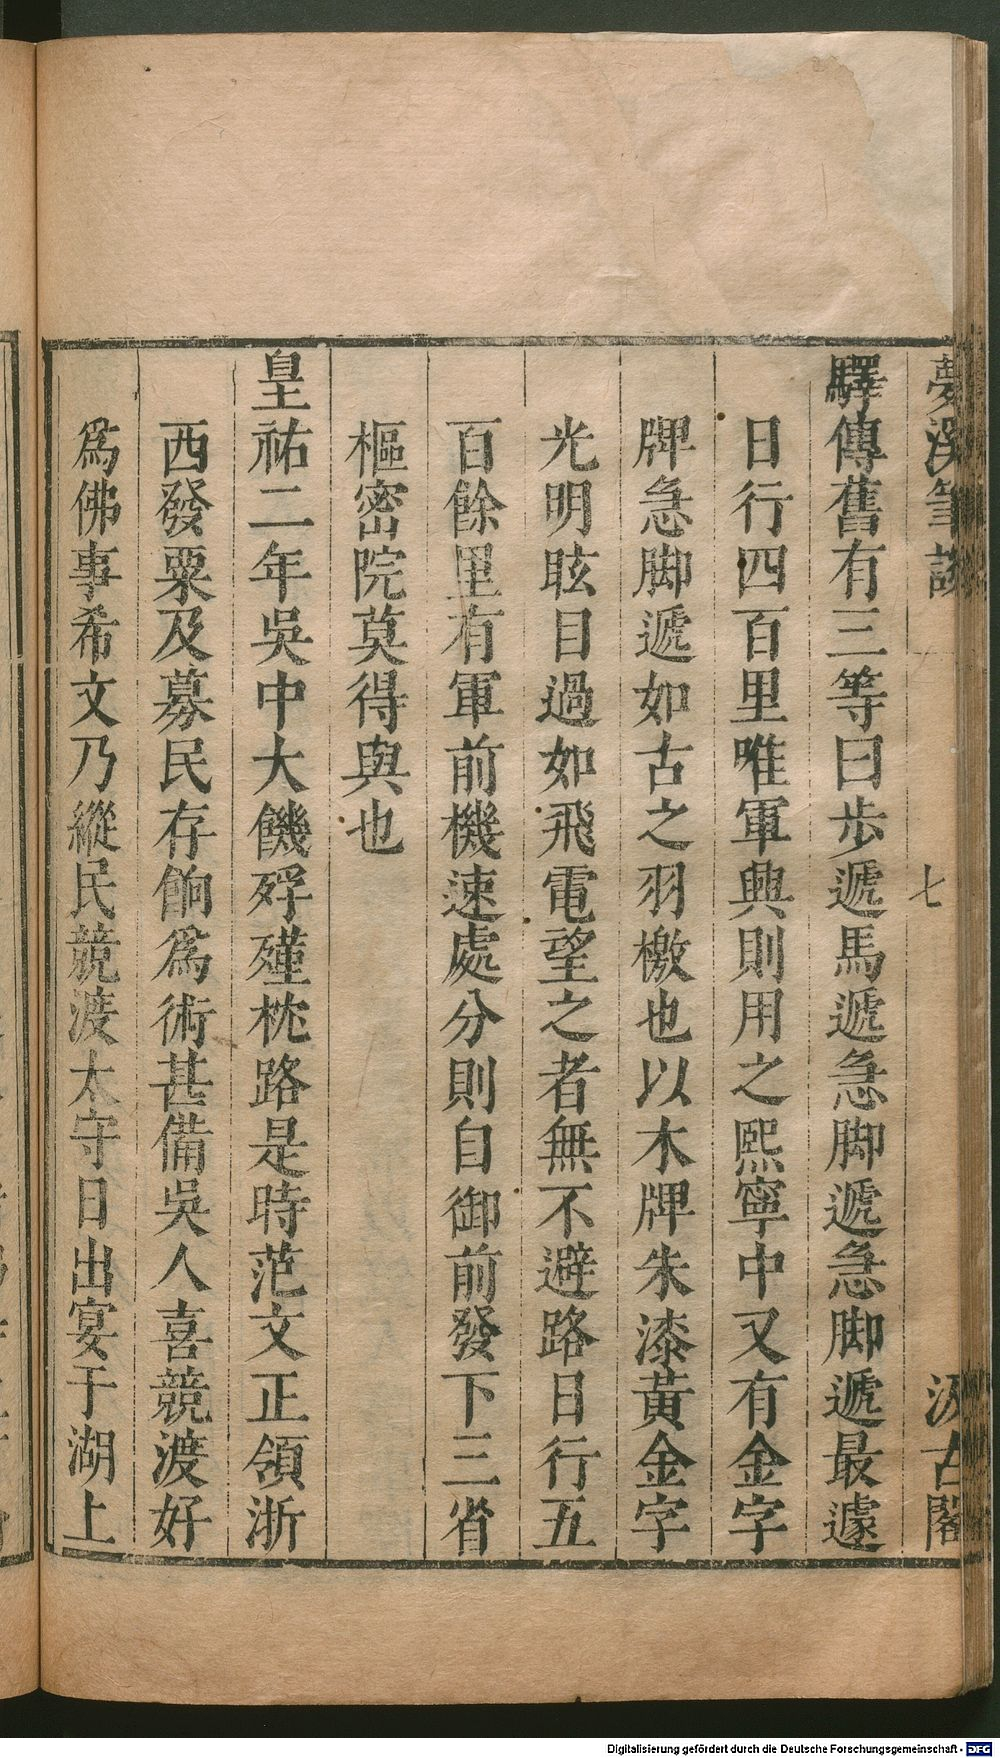 夢溪筆談
七
汲古閣
驛傳舊有三等曰歩遞馬遞急脚遞急脚遞最遽
日行四百里唯軍興則用之熙寧中又有金字
牌急脚遞如古之羽檄也以木牌朱漆黃金字
光明眩目過如飛電望之者無不避路日行五
百餘里有軍前機速處分則自御前發下三省
樞密院莫得與也
皇祐二年吳中大饑殍殣枕路是時范文正領浙
西發粟及募民存餉爲術甚備吳人喜競渡好
爲佛事希文乃縱民競渡太守日出宴于湖上
Digitalisierung gefördert durch die Deutsche Forschungsgemeinschaft - DFG